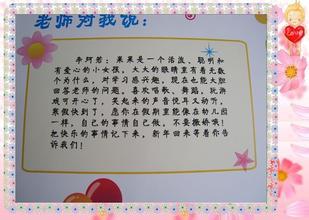 老师对我说:
李珂若：果果是一个活泼、聪明和
有爱心的小女孩，大大的眼睛里有着无数
个为什么，对学习感兴趣，现在也能大胆
回答老师的问题，喜欢唱歌、舞蹈，玩游
戏可开心了，笑起来的声音悦耳又动听，
寒假快到了，愿你在假期里能像在幼儿园
一样，自己的事情自己做，不要撒娇哦！
把快乐的事情记下来，新年回来等着你告
诉我们！